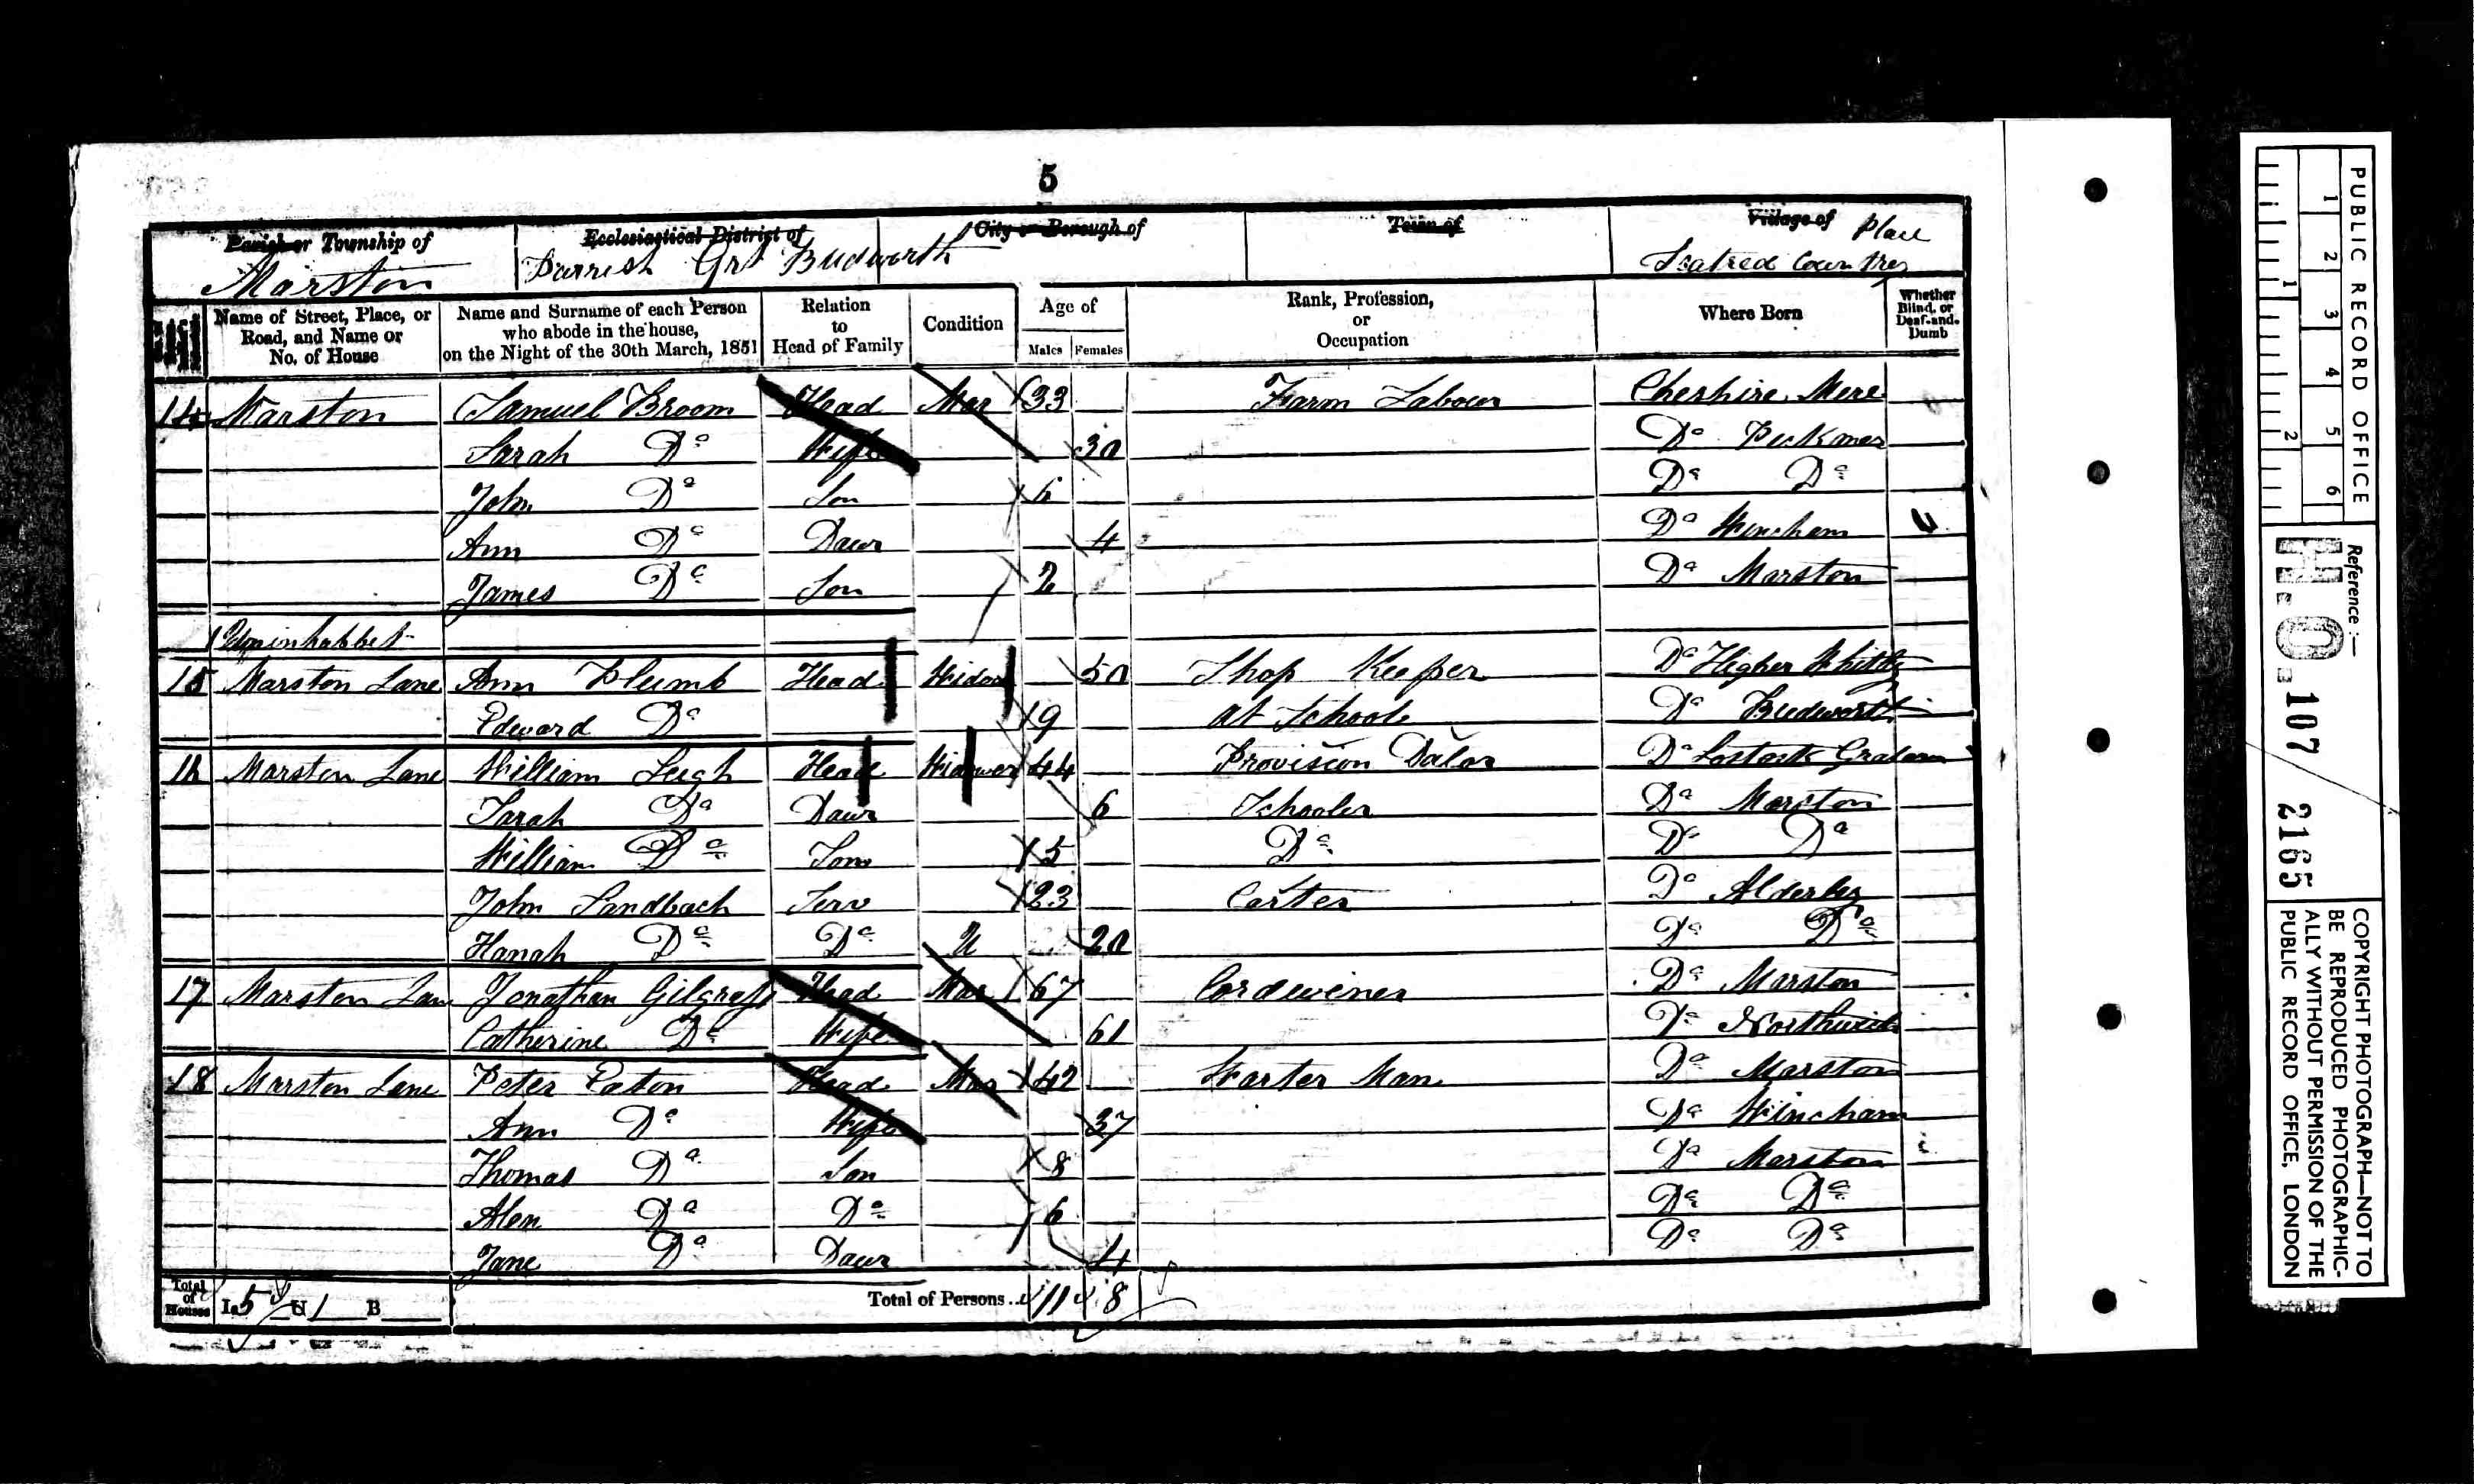 5
Parish or Township of Ecclesiastical District of City or Borough of Town of Village of Place
Marston Parrish Grt Budworth Scatred Countrey
Name of Street, Place, or Road, and Name or No. of House
Name and Surname of each Person who abode in the house, on the Night of the 30th March, 1851
Relation to Head of Family
Condition
Age of
Males Females
Rank, Profession, or Occupation
Where Born
Whether Blind, or Deaf-and-Dumb
14 Marston Samuel Broom Head Mar 33 Farm Labour Cheshire Mere
Sarah Do Wife 30 Do Peckmer
John Do Son 6 Do Do
Ann Do Dawr 4 Do Wincham
James Do Son 2 Do Marston
1
15 Marston Lane Ann Plumb Head Widow 50 Shop Keeper Do Higher Whitly
Edward Do 9 at Schoole Do Budworth
16 Marston Lane William Leigh Head Widower 44 Provision Daler Do Lostock Gralam
Sarah Do Dawr 6 Schooler Do Marston
William Do Son 5 Do Do Do
John Sandbach Serv 23 Carter Do Alderley
Hanah Do Do U 20 Do Do
17 Marston Lan Jonathan Head Mar 67 Cordwiner Do Marston
Catherine Do Wife 61 Do Northwich
18 Marston Lane Peter Eaton Head Mar 42 Man Do Marston
Ann Do Wife 37 Do Wincham
Thomas Do Son 8 Do Marston
Alen Do Do 6 Do Do
Jane Do Dawr 4 Do Do
Total of Houses I 5 U 1 B Total of Persons 11 8
PUBLIC RECORD OFFICE
1 2 3 4 5 6
1 2
Reference:—
H.O. 107 2165
COPYRIGHT PHOTOGRAPH—NOT TO
BE REPRODUCED PHOTOGRAPHIC-
ALLY WITHOUT PERMISSION OF THE
PUBLIC RECORD OFFICE, LONDON